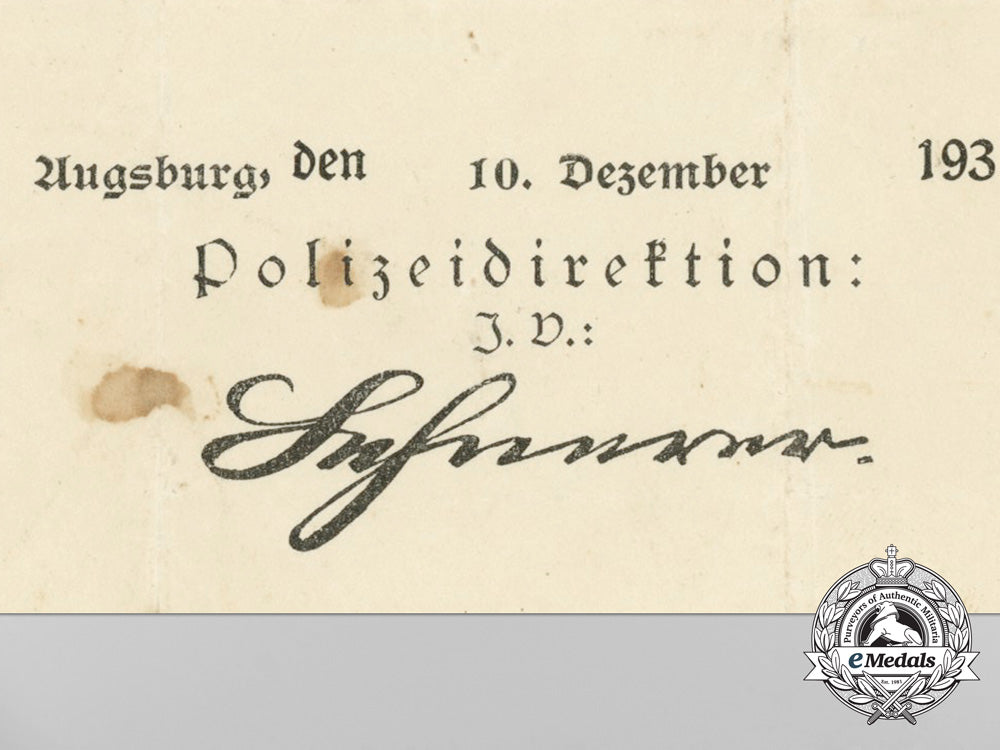 Augsburg, den 10. Dezember 193
Polizeidirektion:
J. V.:
Purveyors of Authentic Militaria
eMedals
Est. 1981